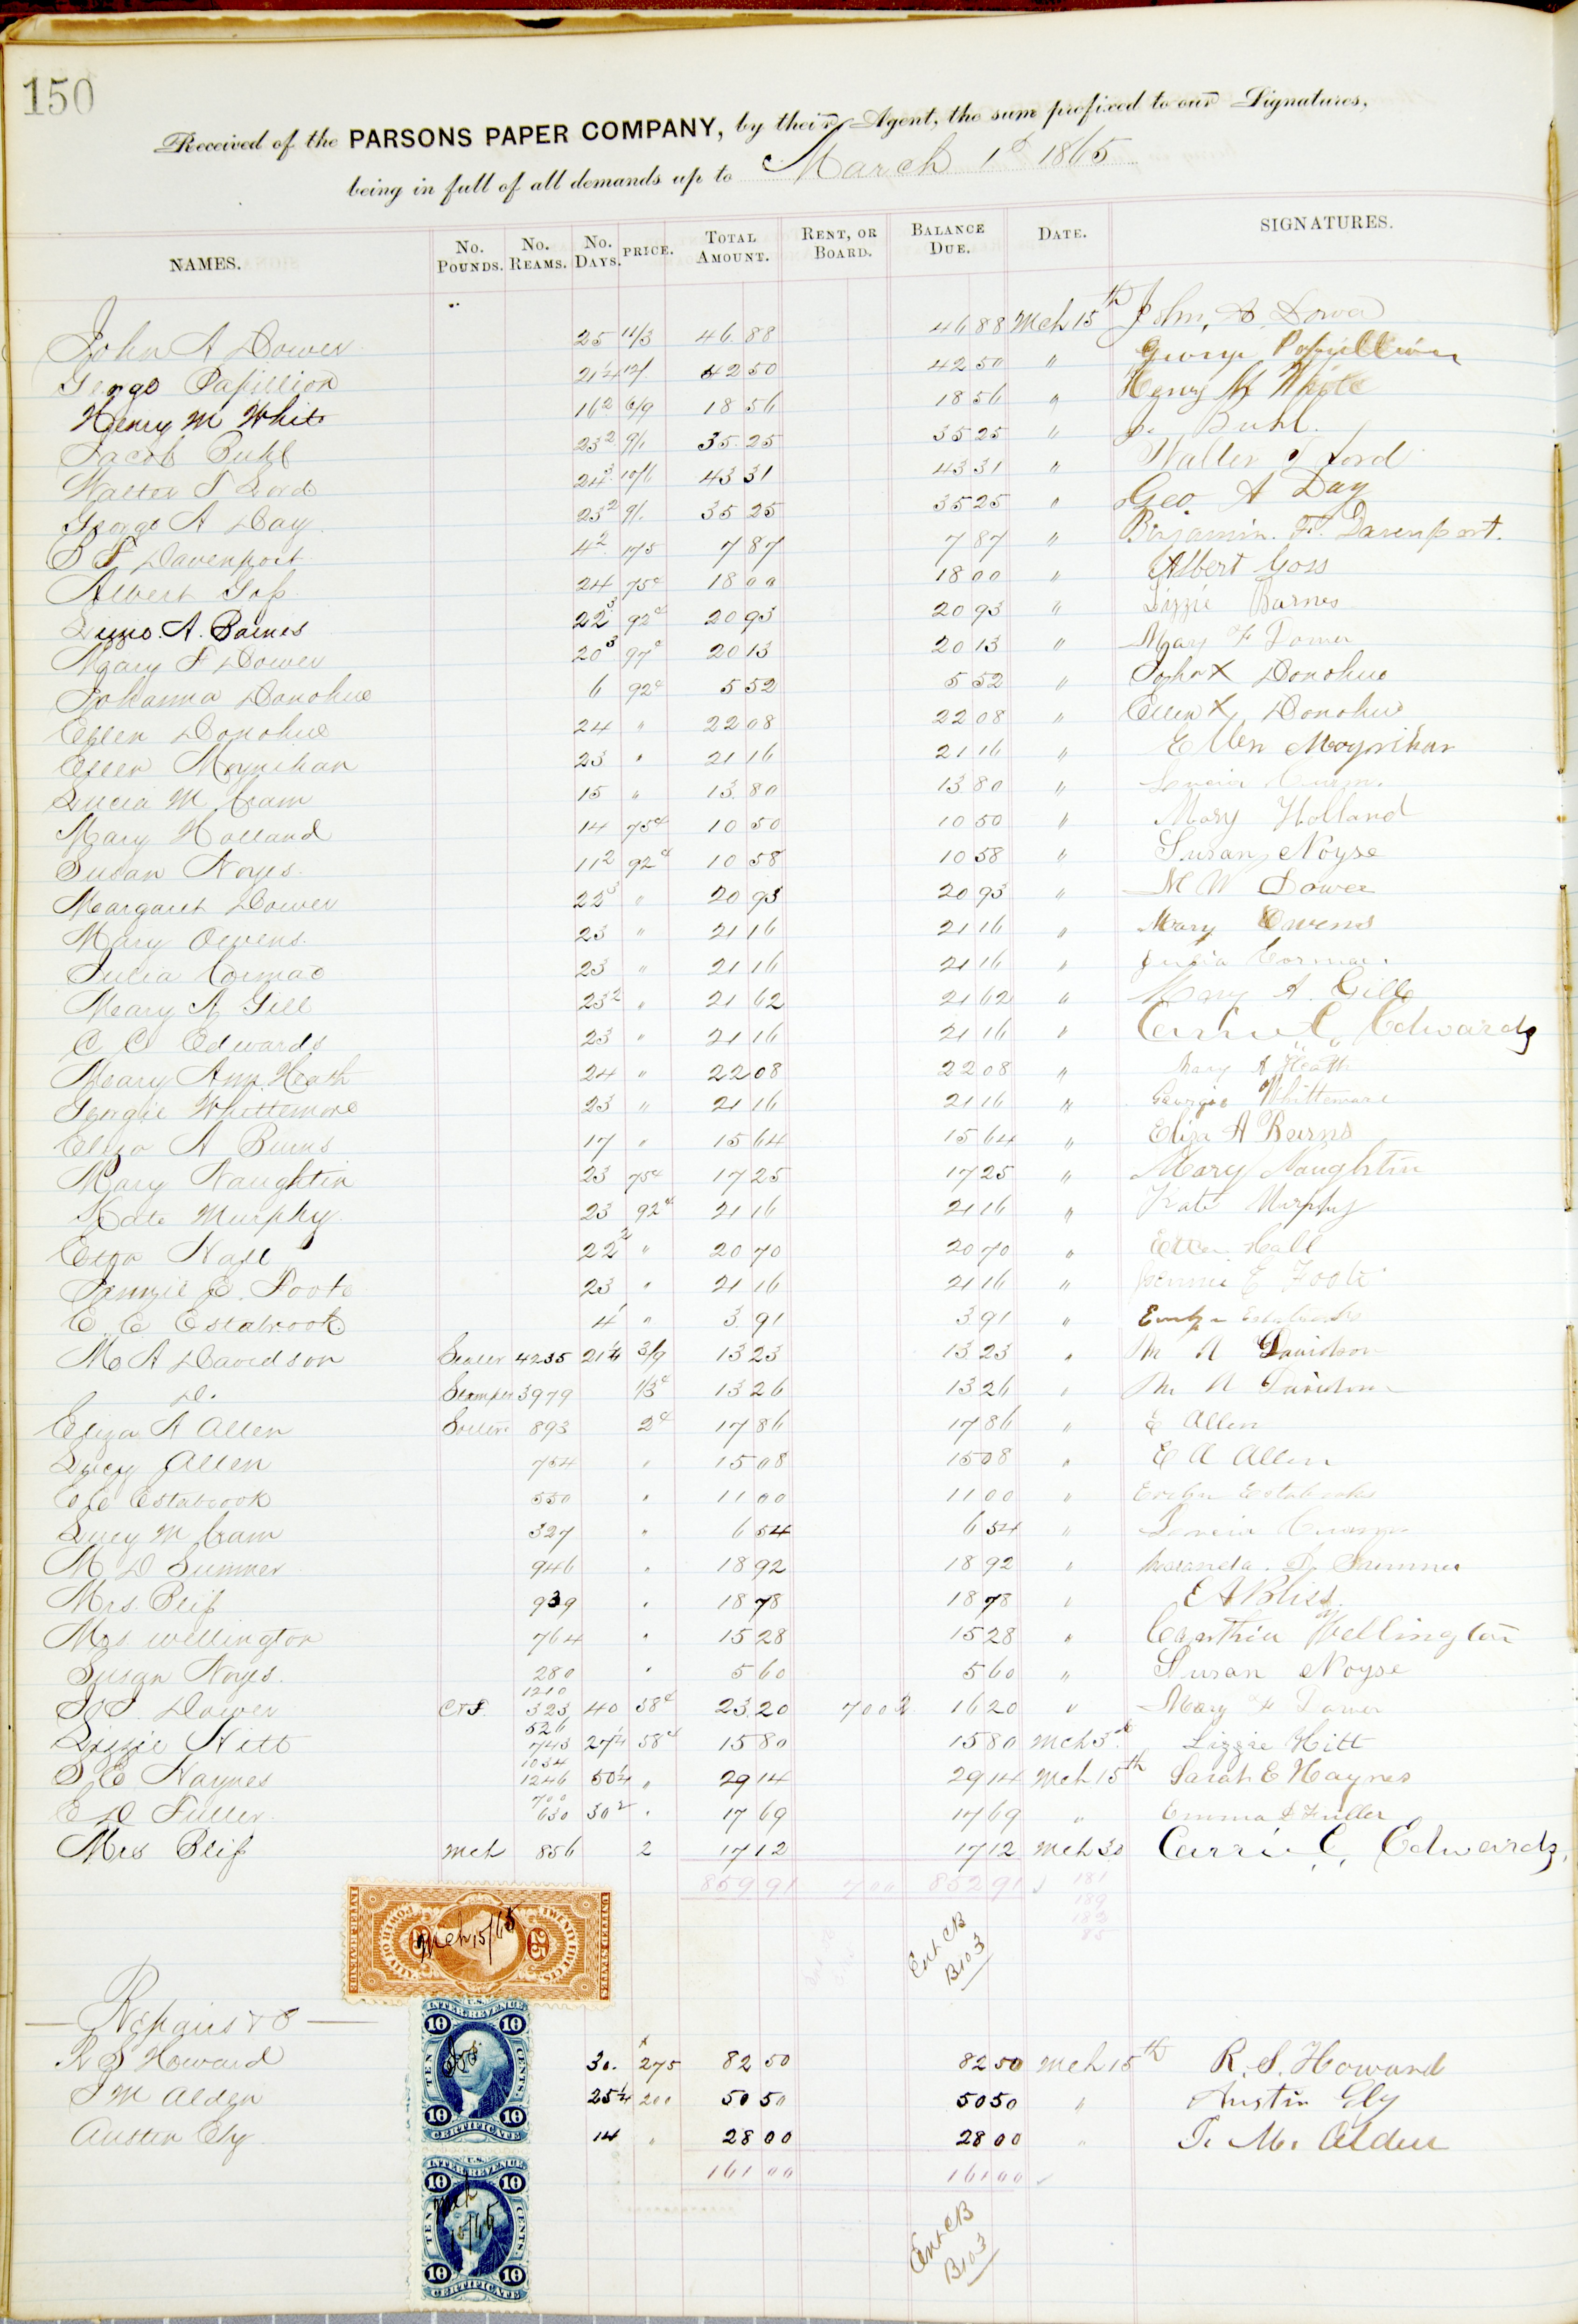 150
Received of the PARSONS PAPER COMPANY, by their Agent, the sum prefixed to our Signatures,
being in full of all demands up to March 1st 1865
NAMES. No. Pounds. No. Reams. No. Days. PRICE. Total Amount. Rent, or Board. Balance Due. Date. SIGNATURES.
John A Dower 25 11/3 46.88 46 88 Mch 15th John, A, Dower
George Papillion 21 1/4 12/ 42 50 42 50 " George Papillion
Henry M White 16 2 6/9 18 56 18 56 " Henry M White
Jacob Buhl 23 2 9/. 35.25 35 25 " J. Buhl.
Walter T Lord 24 3 10/6 43 31 43 31 " Walter T Lord
George A Day 23 2 9/. 35 25 35 25 " Geo. A Day
B F Davenport 4 2 175 7 87 7 87 " Benjamin. F. Davenport.
Albert Goss 24 75c 18 00 18 00 " Albert Goss
Lizzie. A. Barnes 22 3 92c 20 93 20 93 " Lizzie Barnes
Mary F Dower 20 3 97c 20 13 20 13 " Mary F Dower
Johanna Donohue 6 92c 5 52 5 52 " Joh X Donohue
Ellen Donohue 24 " 22 08 22 08 " Ellen X Donohue
Ellen Moynihan 23 " 21 16 21 16 " Ellen Moynihan
Lucia M Cram 15 " 13.80 13 80 " Lucia Cram.
Mary Holland 14 75c 10 50 10 50 " Mary Holland
Susan Noyes. 11 2 92c 10 58 10 58 " Susan Noyse
Margaret Dower 22 3 " 20 93 20 93 " M W Dower
Mary Owens. 23 " 21 16 21 16 " Mary Owens
Julia Cormac 23 " 21 16 21 16 " Julia Cormac
Mary A Gill 23 2 " 21 62 21 62 " Mary A. Gill
C C Edwards 23 " 21 16 21 16 " Carrie C. Edwards
Mary Ann Heath 24 " 22 08 22 08 " Mary A Heath
Georgie Whittemore 23 " 21 16 21 16 " Georgie Whittemore
Eliza A Burns 17 " 15 64 15 64 " Eliza A Burns
Mary Naughtin 23 75c 17 25 17 25 " Mary Naughtin
Kate Murphy. 23 92c 21 16 21 16 " Kate Murphy
Etta Hall 22 2 " 20 70 20 70 " Etta Hall
Jennie E. Foote 23 " 21 16 21 16 " Jennie E Foote
E. C. Estabrook 4 1 " 3.91 3 91 "
M A Davidson Sealer 4235 21 1/4 3/9 13 23 13 23 " M A Davidson
Do. Stamper 3979 1/3c 13 26 13 26 " M A Davidson
Eliza A Allen Sorters 893 2c 17 86 17 86 " E Allen
Lucy Allen 754 " 15 08 15 08 " E A Allen
E C Estabrook 550 " 11 00 11 00 "
Lucy M Cram 327 " 6 54 6 54 " Lucia Cram
M D Sumner 946 " 18 92 18 92 " D. Sumner
Mrs. Bliss 939 " 18 78 18 78 " E A Bliss.
Mrs. Wellington 764 " 15 28 15 28 " Wellington
Susan Noyes. 280 " 5 60 5 60 " Susan Noyse
M F. Dower C & F. 1210 323 40 58c 23.20 7 00 16 20 " Mary F Dower
Lizzie Hitt 526 743 27 1/4 58c 15 80 15 80 Mch 3d Lizzie Hitt
S E Haynes 1034 1246 50 1/4 " 29 14 29 14 Mch 15th Sarah E Haynes
E D Fuller. 700 630 30 2 " 17 69 17 69 " Emma D Fuller
Mrs Bliss Mch 856 2 17 12 17 12 Mch 30 Carrie C. Edwards,
859 91 7 00 852 91 181
189
183
85
UNITED STATES INTER. REVENUE TWENTY FIVE CENTS 25
Mch 15/65
Ent CB
B103
Repairs &c
R S Howard 30. 275 82 50 82 50 Mch 15th R. S. Howard
T M Alden 25 1/4 200 50 50 50 50 " Austin Ely
Austin Ely 14 " 28 00 28 00 " T. M. Alden
161 00 161 00
U.S. INTER. REVENUE 10 10 TEN CENTS. 10 10 CERTIFICATE
U.S. INTER. REVENUE 10 10 TEN CENTS. 10 10 CERTIFICATE
Mch 15/65
Ent CB
B103